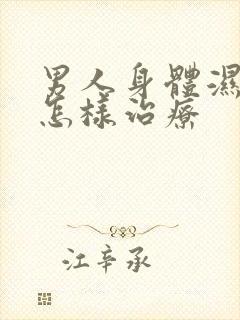 男人身體濕
怎樣治療
江辛承